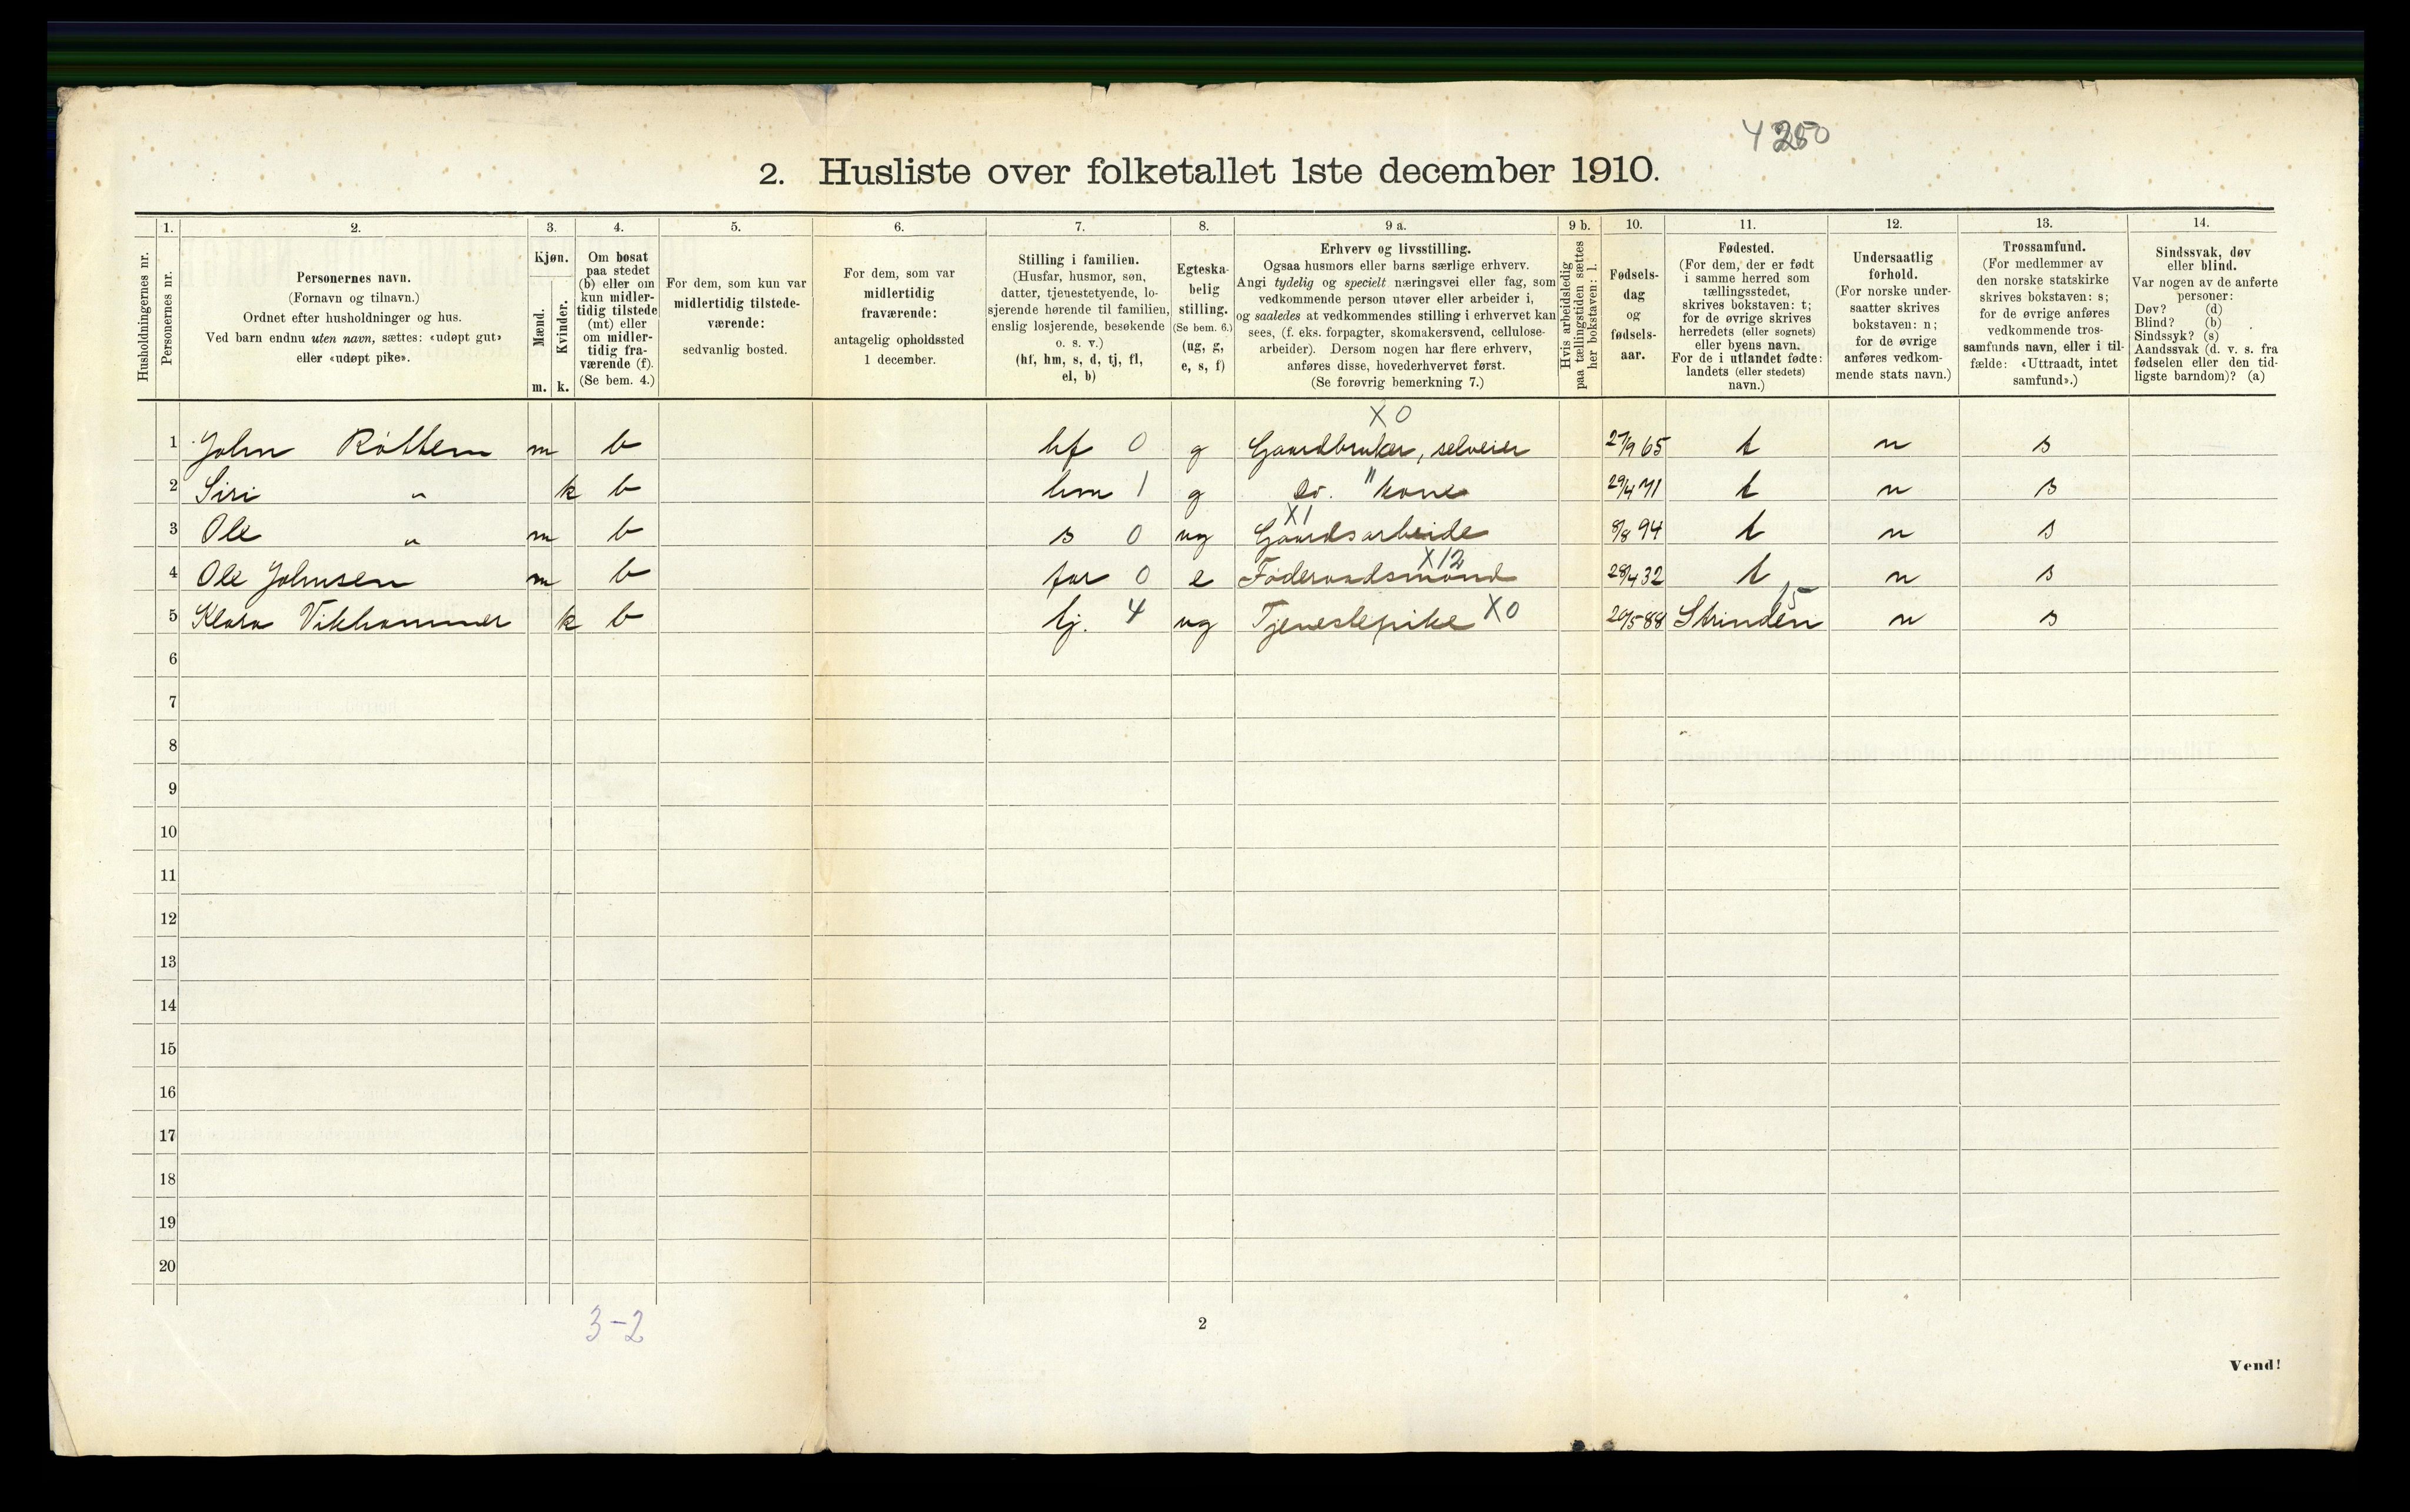 4250
2. Husliste over folketallet 1ste december 1910.
Husholdningernes nr.
1.
Personernes nr.
2.
Personernes navn.
(Fornavn og tilnavn.)
Ordnet efter husholdninger og hus.
Ved barn endnu uten navn, sættes: «udøpt gut»
eller «udøpt pike».
3.
Kjøn.
Mænd.
m.
Kvinder.
k.
4.
Om bosat
paa stedet
(b) eller om
kun midler-
tidig tilstede
(mt) eller
om midler-
tidig fra-
værende (f).
(Se bem. 4.)
5.
For dem, som kun var
midlertidig tilstede-
værende:
sedvanlig bosted.
6.
For dem, som var
midlertidig
fraværende:
antagelig opholdssted
1 december.
7.
Stilling i familien.
(Husfar, husmor, søn,
datter, tjenestetyende, lo-
sjerende hørende til familien,
enslig losjerende, besøkende
o. s. v.)
(hf, hm, s, d, tj, fl,
el, b)
8.
Egteska-
belig
stilling.
(Se bem. 6.)
(ug, g,
e, s, f)
9 a.
Erhverv og livsstilling.
Ogsaa husmors eller barns særlige erhverv.
Angi tydelig og specielt næringsvei eller fag, som
vedkommende person utøver eller arbeider i,
og saaledes at vedkommendes stilling i erhvervet kan
sees, (f. eks. forpagter, skomakersvend, cellulose-
arbeider). Dersom nogen har flere erhverv,
anføres disse, hovederhvervet først.
(Se forøvrig bemerkning 7.)
9 b.
Hvis arbeidsledig
paa tællingstiden sættes
her bokstaven: l.
10.
Fødsels-
dag
og
fødsels-
aar.
11.
Fødested.
(For dem, der er født
i samme herred som
tællingsstedet,
skrives bokstaven: t;
for de øvrige skrives
herredets (eller sognets)
eller byens navn.
For de i utlandet fødte:
landets (eller stedets)
navn.)
12.
Undersaatlig
forhold.
(For norske under-
saatter skrives
bokstaven: n;
for de øvrige
anføres vedkom-
mende stats navn.)
13.
Trossamfund.
(For medlemmer av
den norske statskirke
skrives bokstaven: s;
for de øvrige anføres
vedkommende tros-
samfunds navn, eller i til-
fælde: «Uttraadt, intet
samfund».)
14.
Sindssvak, døv
eller blind.
Var nogen av de anførte
personer:
Døv? (d)
Blind? (b)
Sindssyk? (s)
Aandssvak (d. v. s. fra
fødselen eller den tid-
ligste barndom)? (a)
X0
1 John Røttem m b hf 0 g Gaardbruker, selveier 27/9 65 t n s
2 Siri " k b hm 1 g do. " kone 29/4 71 t n s
X1
3 Ole " m b s 0 ug Gaardsarbeide 8/8 94 t n s
X12
4 Ole Johnsen m b far 0 e Føderaadsmand 28/4 32 t n s
15
5 Klara Vikhammer k b tj. 4 ug Tjenestepike X0 20/5 88 Strinden n s
6
7
8
9
10
11
12
13
14
15
16
17
18
19
20
3-2
2
Vend!